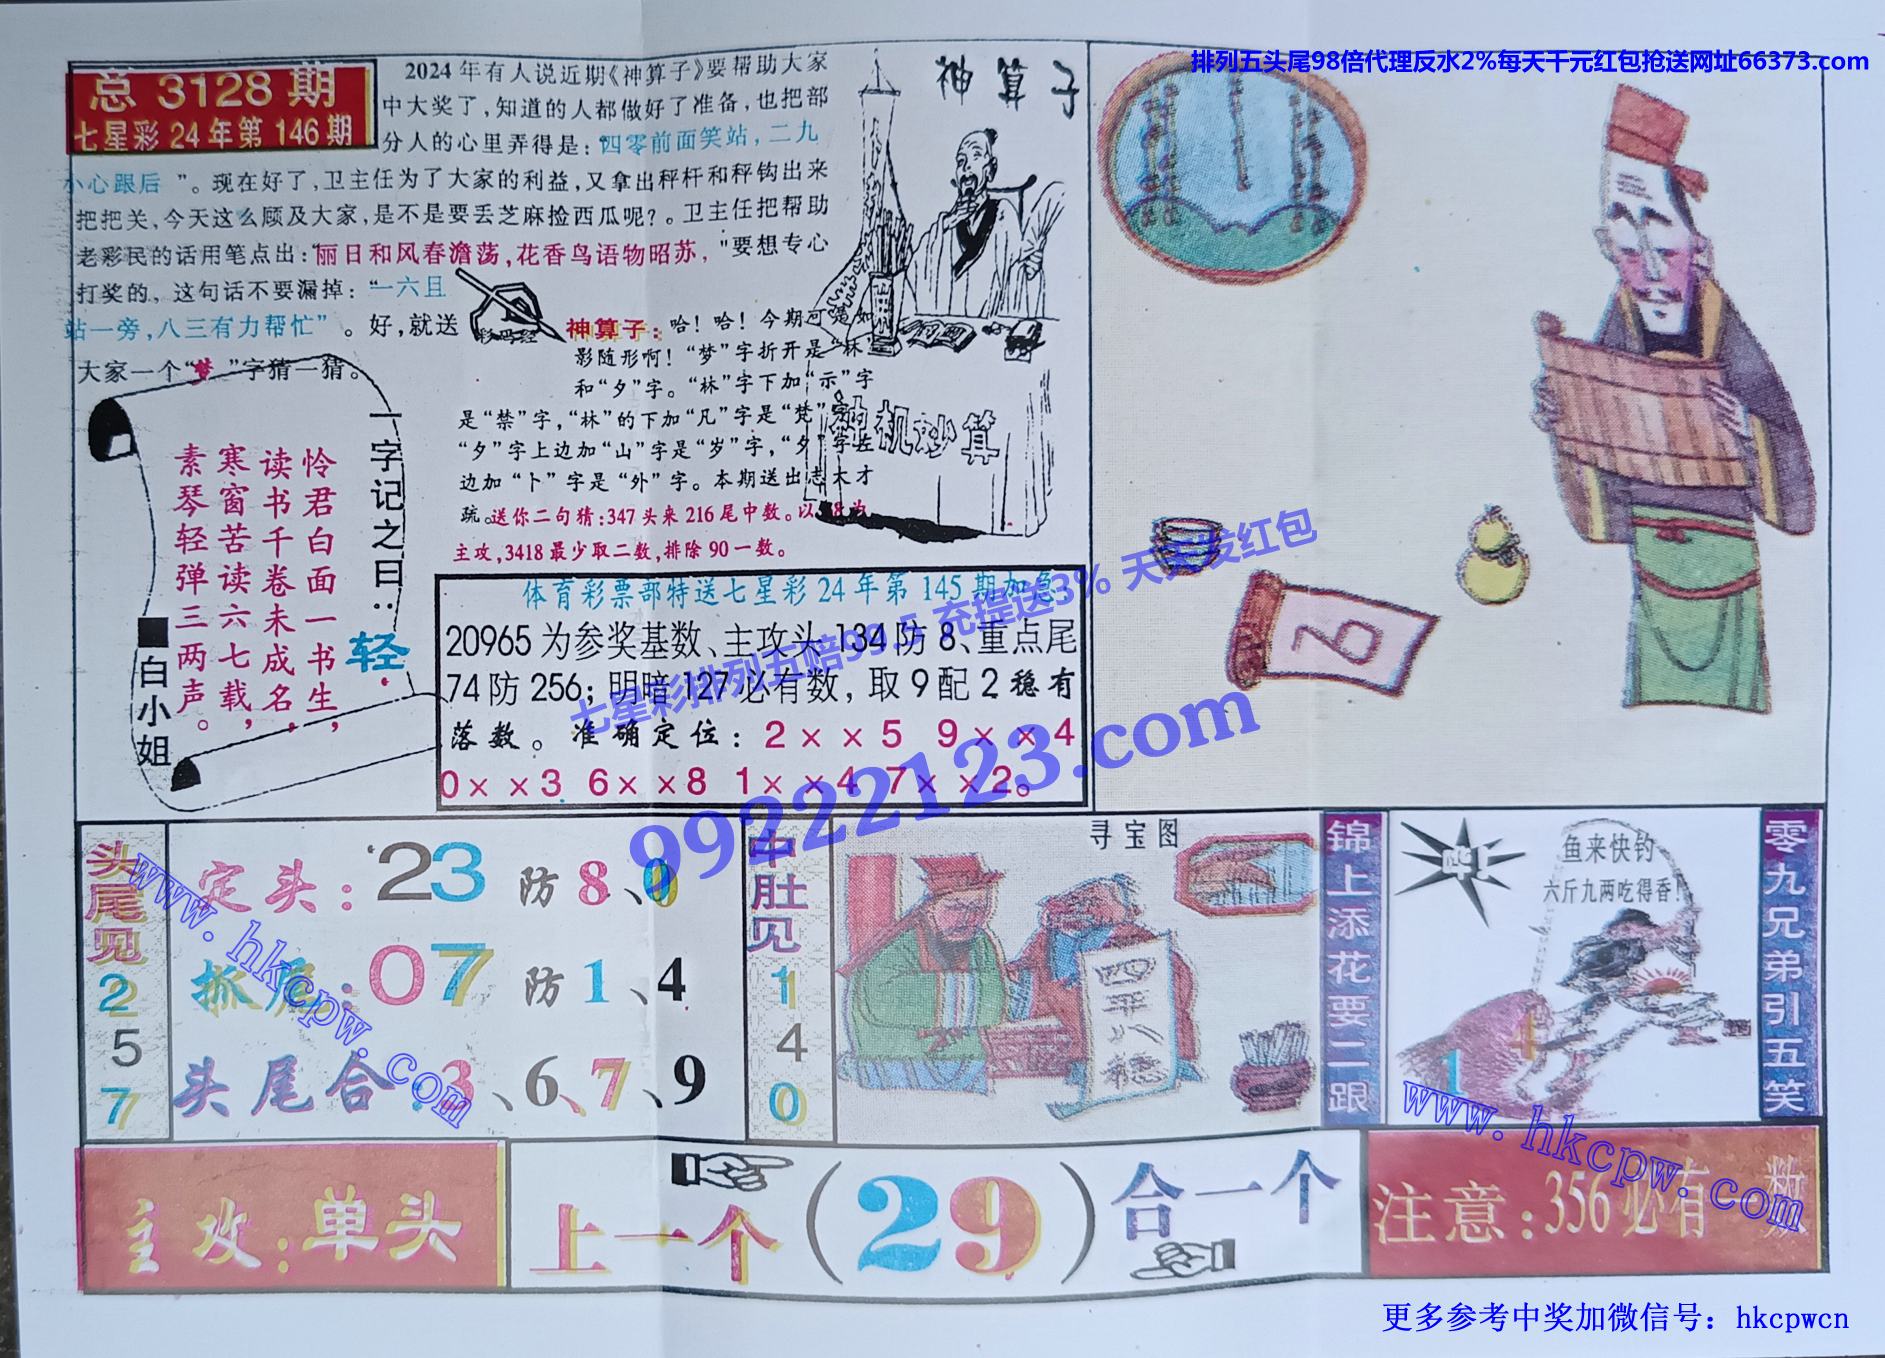 排列五头尾98倍代理反水2%每天千元红包抢送网址66373.com
总 3128 期
七星彩 24 年第 146 期
2024 年有人说近期《神算子》要帮助大家
中大奖了,知道的人都做好了准备,也把部
分人的心里弄得是:“四零前面笑站,二九
小心跟后 ”。现在好了,卫主任为了大家的利益,又拿出秤杆和秤钩出来
把把关,今天这么顾及大家,是不是要丢芝麻捡西瓜呢?。卫主任把帮助
老彩民的话用笔点出:“丽日和风春澹荡,花香鸟语物昭苏,"要想专心
打奖的，这句话不要漏掉:“一六且
站一旁,八三有力帮忙”。好,就送
大家一个“梦 ”字猜一猜。
神 算 子
神算子:哈！哈！今期可是如
影随形啊！“梦”字折开是“林”
和“夕”字。“林”字下加“示”字
是“禁”字,“林”的下加“凡”字是“梵”字
“夕”字上边加“山”字是“岁”字,“夕”字左
边加“卜”字是“外”字。本期送出志大才
疏。送你二句猜:347 头来 216 尾中数。以 8 为
主攻,3418 最少取二数,排除 90 一数。
神机妙算
一字记之曰:
轻
怜君白面一书生,
读书千卷未成名,
寒窗苦读六七载,
素琴轻弹三两声。
■白小姐
体育彩票部特送七星彩 24 年第 145 期加急!
20965 为参奖基数、主攻头 134 防 8、重点尾
74 防 256; 明暗 127 必有数, 取 9 配 2 稳 有
落 数 。 准 确 定 位: 2 × × 5 9 × × 4
0× ×3 6× ×8 1× ×4 7× ×2。
七星彩排列五赔99.5 充提送3% 天天发红包
99222123.com
头尾见
2
5
7
定头: 23 防 8、0
抓尾: 07 防 1、4
头尾合:3、6、7、9
中肚见
1
4
0
寻宝图
四平八稳
锦上添花要二跟
鱼来快钓
六斤九两吃得香!
1
4
零九兄弟引五笑
主攻:单头
上一个(29)合一个
注意:356必有一数
www.hkcpw.com
www.hkcpw.com
更多参考中奖加微信号：hkcpwcn